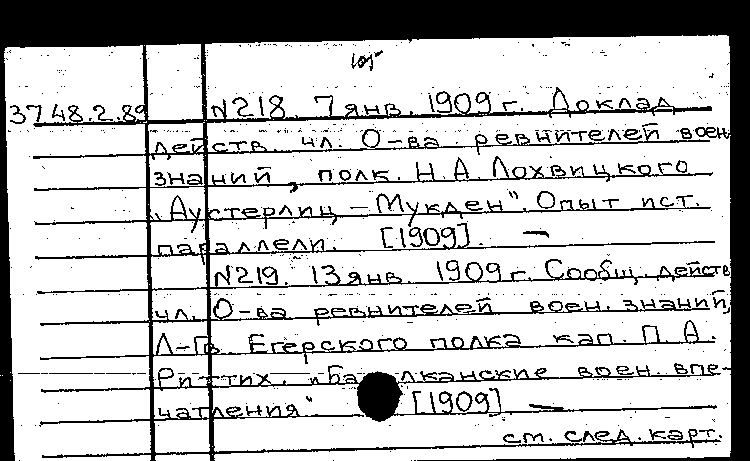 105
3748.2.89 N218. 7 янв. 1909 г. Доклад
действ. чл. О-ва ревнителей воен.
знаний, полк. Н.А. Лохвицкого
„Аустерлиц – Мукден". Опыт ист.
параллели. [1909]. —
N219. 13 янв. 1909 г. Сообщ. действ.
чл. О-ва ревнителей воен. знаний,
Л-Гв. Егерского полка кап. П.А.
Риттих. „Балканские воен. впе-
чатления" [1909] —
см. след. карт.